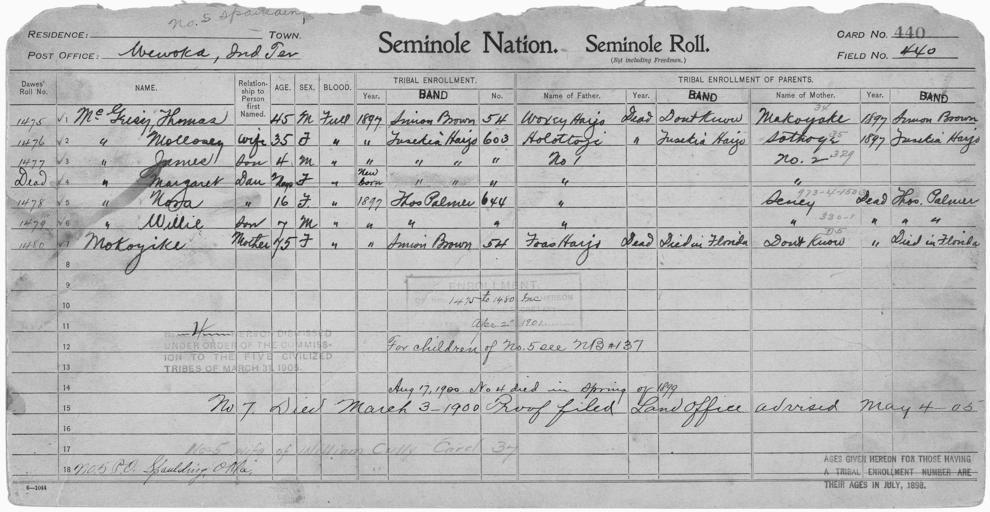 No. 5 Spaulding,
RESIDENCE: TOWN.
POST OFFICE: Wewoka, Ind Ter
Seminole Nation. Seminole Roll.
(Not including Freedmen.)
CARD NO. 440
FIELD NO. 440
Dawes' Roll No. NAME. Relationship to Person first Named. AGE. SEX. BLOOD. TRIBAL ENROLLMENT. TRIBAL ENROLLMENT OF PARENTS.
Year. BAND No. Name of Father. Year. BAND Name of Mother. Year. BAND
1475 ✓ 1 Mc Thomas 45 M Full 1897 Simion Brown 54 Woxsey Harjo Dead Dont Know Makoyoke 34 1897 Simion Brown
1476 ✓ 2 " Molleosey wife 35 F " " Tusekia Harjo 603 Holottoje " Tusekia Harjo 1897 Tusekia Harjo
1477 ✓ 3 " James son 4 M " " " " " No 1 No. 2 329
Dead ✓ 4 " Margaret Dau F " New born " " " "
1478 ✓ 5 " Nora " 16 F " 1897 Thos Palmer 644 " Seney Dead Thos. Palmer
1479 ✓ 6 " Willie son 7 M " " " " " " " " "
1480 ✓ 7 Mokoyike Mother 75 F " " Simion Brown 54 Foas Harjo Dead Died in Florida Dont Know " Died in Florida
8
9
ENROLLMENT.
10 1475 to 1480 Inc
11 Apr 2" 1901
4
DISMISSED
12 UNDER ORDER OF THE COMMISSION TO THE FIVE CIVILIZED For children of No. 5 see NB #137
13 TRIBES OF MARCH 31, 1905.
14 Aug 17, 1900 No 4 died in spring of 1899
15 No 7. Died March 3-1900 Proof filed Land Office advised May 4-05
16
17 No. 5 wife of William Cully Card 37
18 No. 5 P.O. Spaulding, Okla.
6—1044
AGES GIVEN HEREON FOR THOSE HAVING
A TRIBAL ENROLLMENT NUMBER ARE
THEIR AGES IN JULY, 1898.